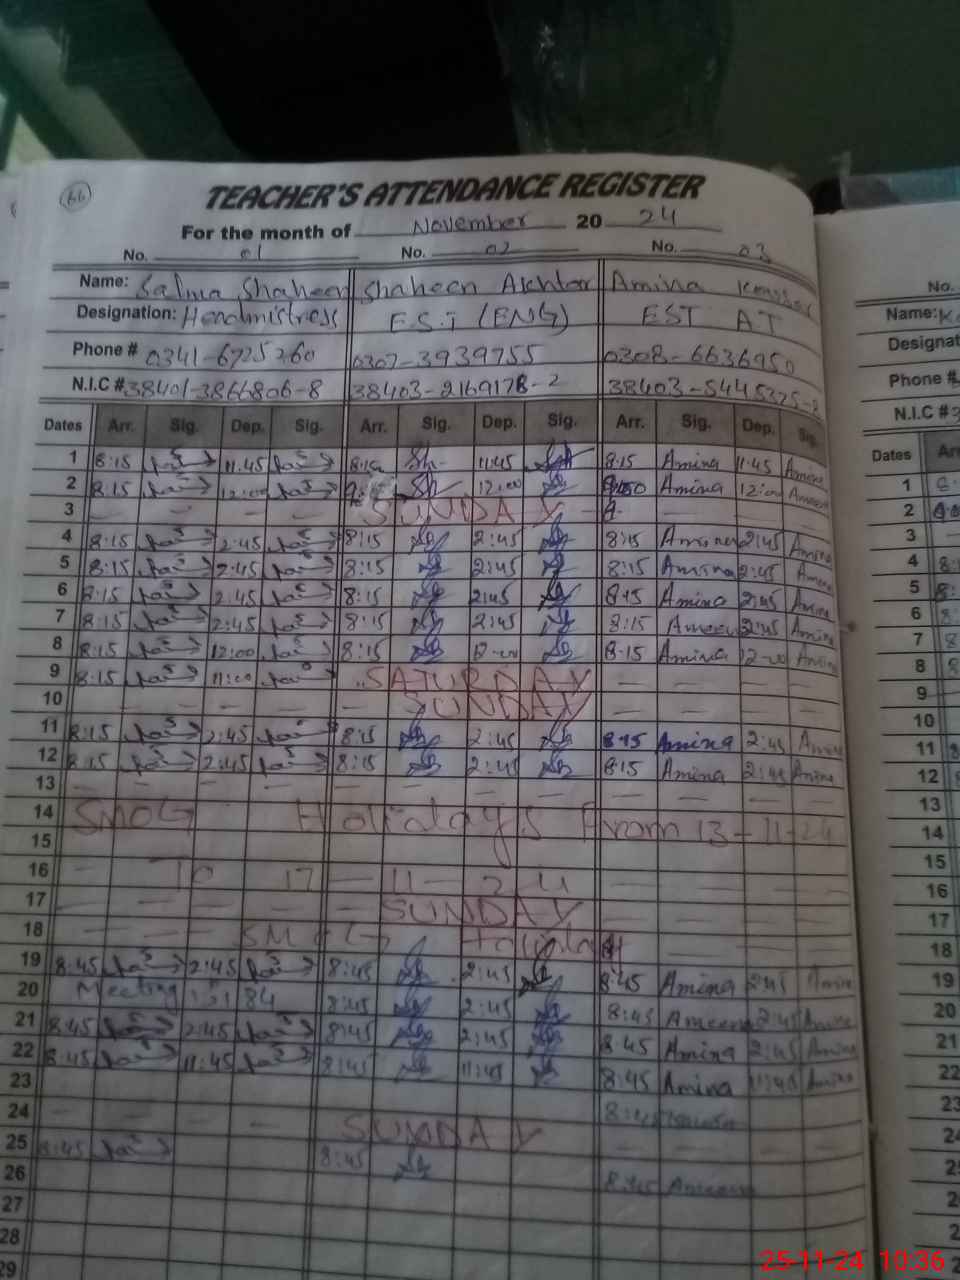 66
TEACHER'S ATTENDANCE REGISTER
For the month of November 20 24
No. 01 No. 02 No. 03
Name: Salma Shaheen Shaheen Akhtar Amina
Designation: Headmistress E.S.T (ENG) EST AT
Phone # 0341-6725260 0307-3939755 0308-6636950
N.I.C # 38401-3866806-8 38403-2169178-2 38403-5445325-
Dates Arr. Sig. Dep. Sig. Arr. Sig. Dep. Sig. Arr. Sig. Dep. Sig.
1 8:15 11.45 8:15 Sh 11:45 8:15 Amina 11:45 Amina
2 8:15 12:00 Sh 12:00 Amina 12:00 Ameen
3 SUNDAY
4 8:15 2:45 8:15 2:45 8:15 Amina 2:45 Amina
5 8:15 2:45 8:15 2:45 8:15 Amina 2:45 Amina
6 8:15 2:45 8:15 2:45 8:15 Amina 2:45 Amina
7 8:15 2:45 8:15 2:45 8:15 Ameen 2:45 Amina
8 8:15 12:00 8:15 12:00 8:15 Amina 12:00 Amina
9 8:15 11:00 SATURDAY
10 SUNDAY
11 8:15 2:45 8:15 2:45 8:15 Amina 2:45 Amina
12 8:15 2:45 8:15 2:45 8:15 Amina 2:45 Amina
13
14 SMOG Holidays From 13-11-24
15
16 To 17-11-24
17 SUNDAY
18 SMOG Holiday
19 8:45 2:45 8:45 2:45 8:45 Amina 2:45 Amina
20 Meeting 8:45 2:45 8:45 Ameen 2:45 Amina
21 8:45 2:45 8:45 2:45 8:45 Amina 2:45 Amina
22 8:45 11:45 8:45 11:45 8:45 Amina 11:45 Amina
23 8:45
24 SUNDAY
25 8:45 8:45 8:45 Ameen
26
27
28
29
No.
Name:
Designat
Phone #
N.I.C #
Dates
1
2
3
4
5
6
7
8
9
10
11
12
13
14
15
16
17
18
19
20
21
22
23
24
25-11-24 10:36